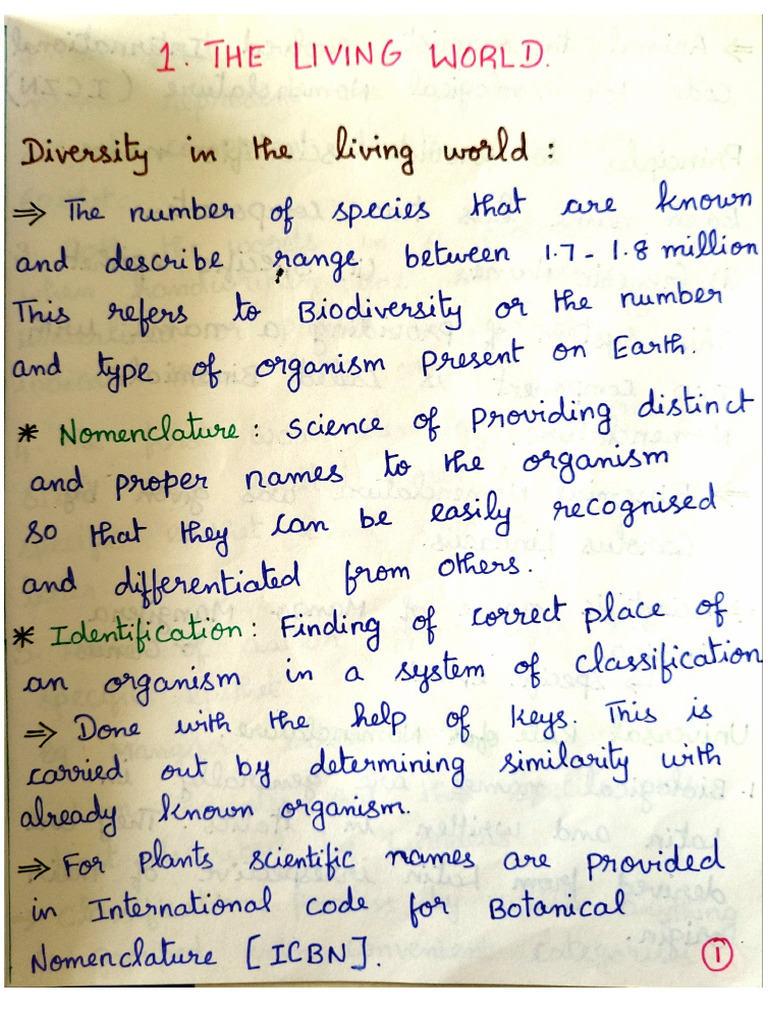 1. THE LIVING WORLD.
Diversity in the living world :
⇒ The number of species that are known
and describe range between 1.7 - 1.8 million
This refers to Biodiversity or the number
and type of organism present on Earth.
* Nomenclature : Science of providing distinct
and proper names to the organism
so that they can be easily recognised
and differentiated from others.
* Identification : Finding of correct place of
an organism in a system of classification
⇒ Done with the help of keys. This is
carried out by determining similarity with
already known organism.
⇒ For plants scientific names are provided
in International code for Botanical
Nomenclature [ICBN].
1